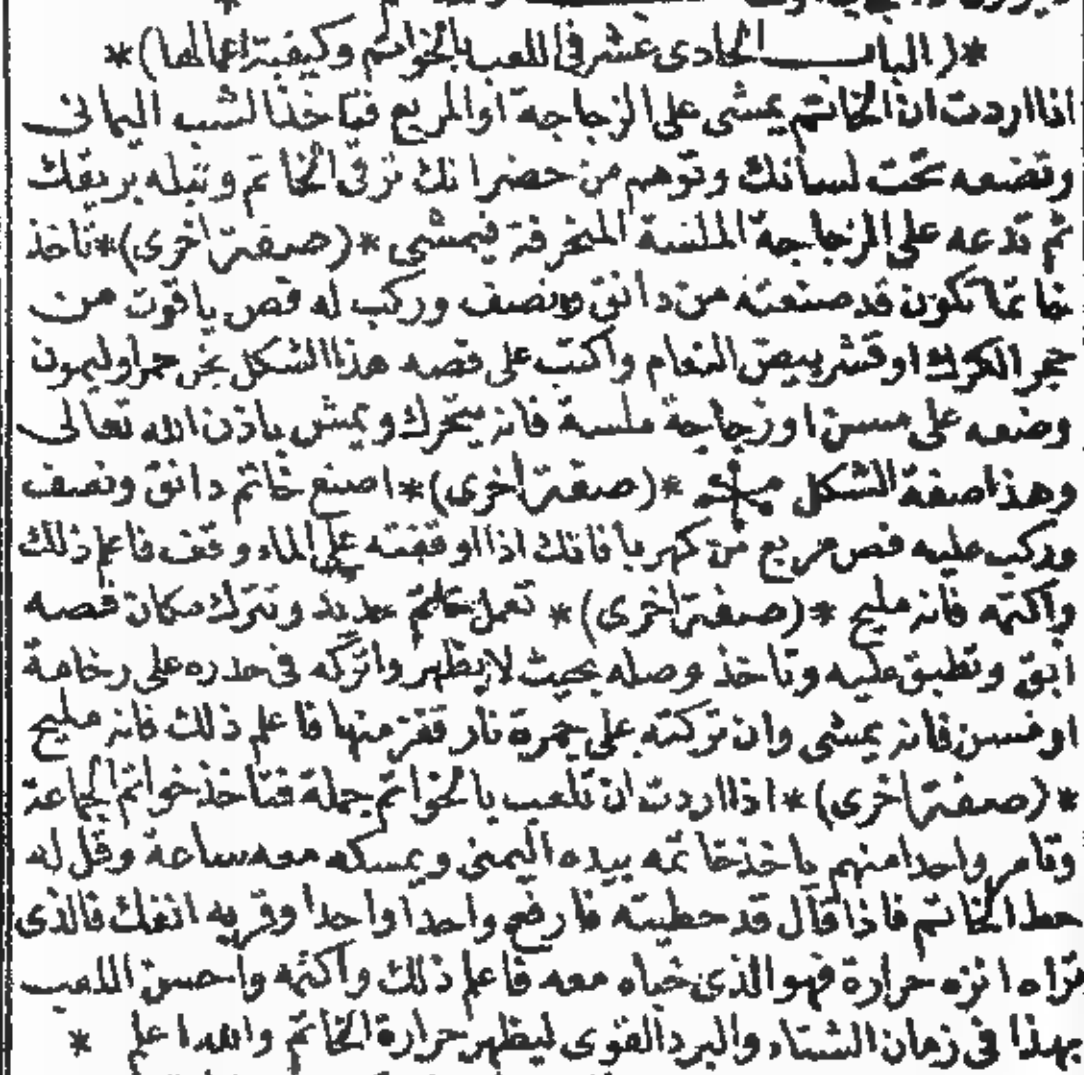 *(الباب الحادى عشر فى اللعب بالخواتم وكيفية اعمالها)*
اذا اردت ان الخاتم يمشى على الزجاجة او المربع فتاخذ الشب اليمانى
وتضعه تحت لسانك وتوهم من حضر انك ترقى الخاتم وتبله بريقك
ثم تدعه على الزجاجة الملسة المنحرفة فيمشى *(صفة اخرى)* تاخذ
خاتما تكون قد صنعته من دانق ونصف وركب له فص ياقوت من
حجر الكرك او قشر بيض النعام واكتب على فصه هذا الشكل بخر حمرا وليمون
وضعه على مسن او زجاجة ملسة فانه يتحرك ويمش باذن الله تعالى
وهذا صفة الشكل *(صفة اخرى)* اصنع خاتم دانق ونصف
وركب عليه فص مربع من كهربا فانك اذا اوقفته على الماء وقف فاعلم ذلك
واكتمه فانه مليح *(صفة اخرى)* تعمل خاتم حديد وتترك مكان فصه
ابق وتطبق عليه وتاخذ وصله بحيث لا يظهر واتركه فى حدره على رخامة
او مسن فانه يمشى وان تركته على جمرة نار قفز منها فاعلم ذلك فانه مليح
*(صفة اخرى)* اذا اردت ان تلعب بالخواتم جملة فتاخذ خواتم الجماعة
وتامر واحدا منهم ياخذ خاتمه بيده اليمنى ويمسكه معه ساعة وقل له
حط الخاتم فاذا قال قد حطيته فارفع واحدا واحدا وقربه انفك فالذى
تراه انزه حرارة فهو الذى خباه معه فاعلم ذلك واكتمه واحسن اللعب
بهذا فى زمان الشتاء والبرد القوى ليظهر حرارة الخاتم والله اعلم *